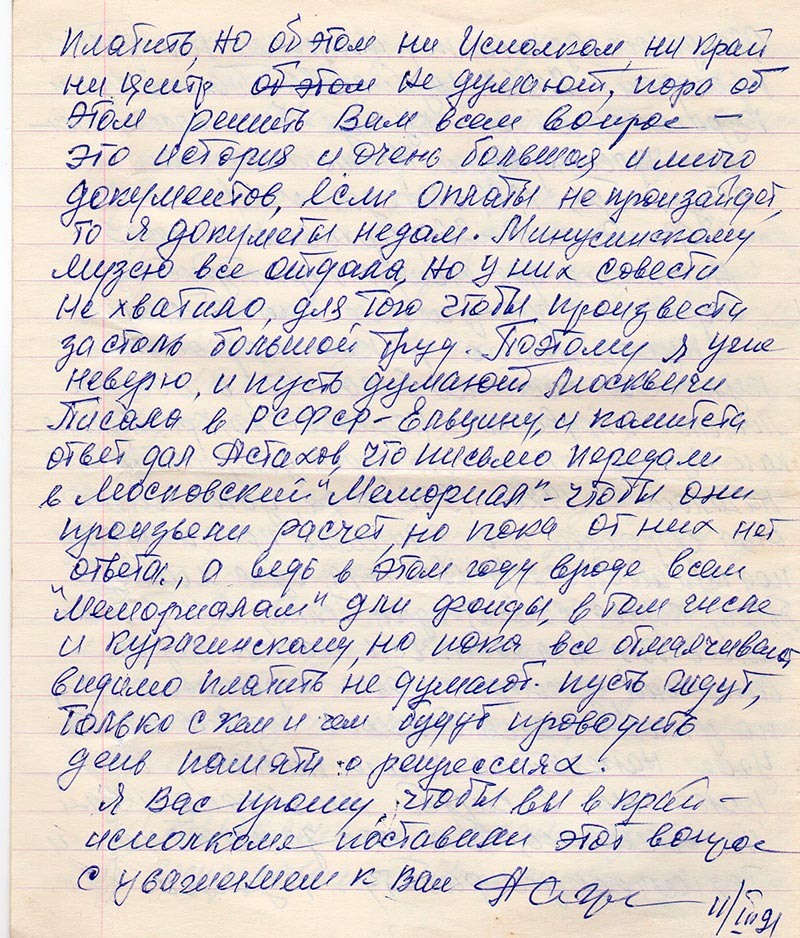 платить, но об этом ни Исполком, ни край
ни центр об этом не думают, пора об
этом решить Вам всем вопрос –
это история и очень большая и много
документов, если оплаты не произайдет,
то я докуметы недам. Минусинскому
музею все отдала, но у них совести
не хватило, для того чтобы произвести
за столь большой труд. Поэтому я уже
неверю, и пусть думают Москвичи
Писала в РСФСР – Ельцину, и комитета
ответ дал Астахов, что письмо передали
в Московский "Мемориал" – чтобы они
произвели расчет, но пока от них нет
ответа., а ведь в этом году вроде всем
"Мемориалам" дли фонды, в том числе
и Курагинскому, но пока все отмалчивают,
видимо платить не думают. пусть ждут,
только с кем и чем будут проводить
день памяти о репрессиях.
Я Вас прошу, чтобы вы в край –
исполкоме поставили этот вопрос
С уважением к Вам
11/III 91